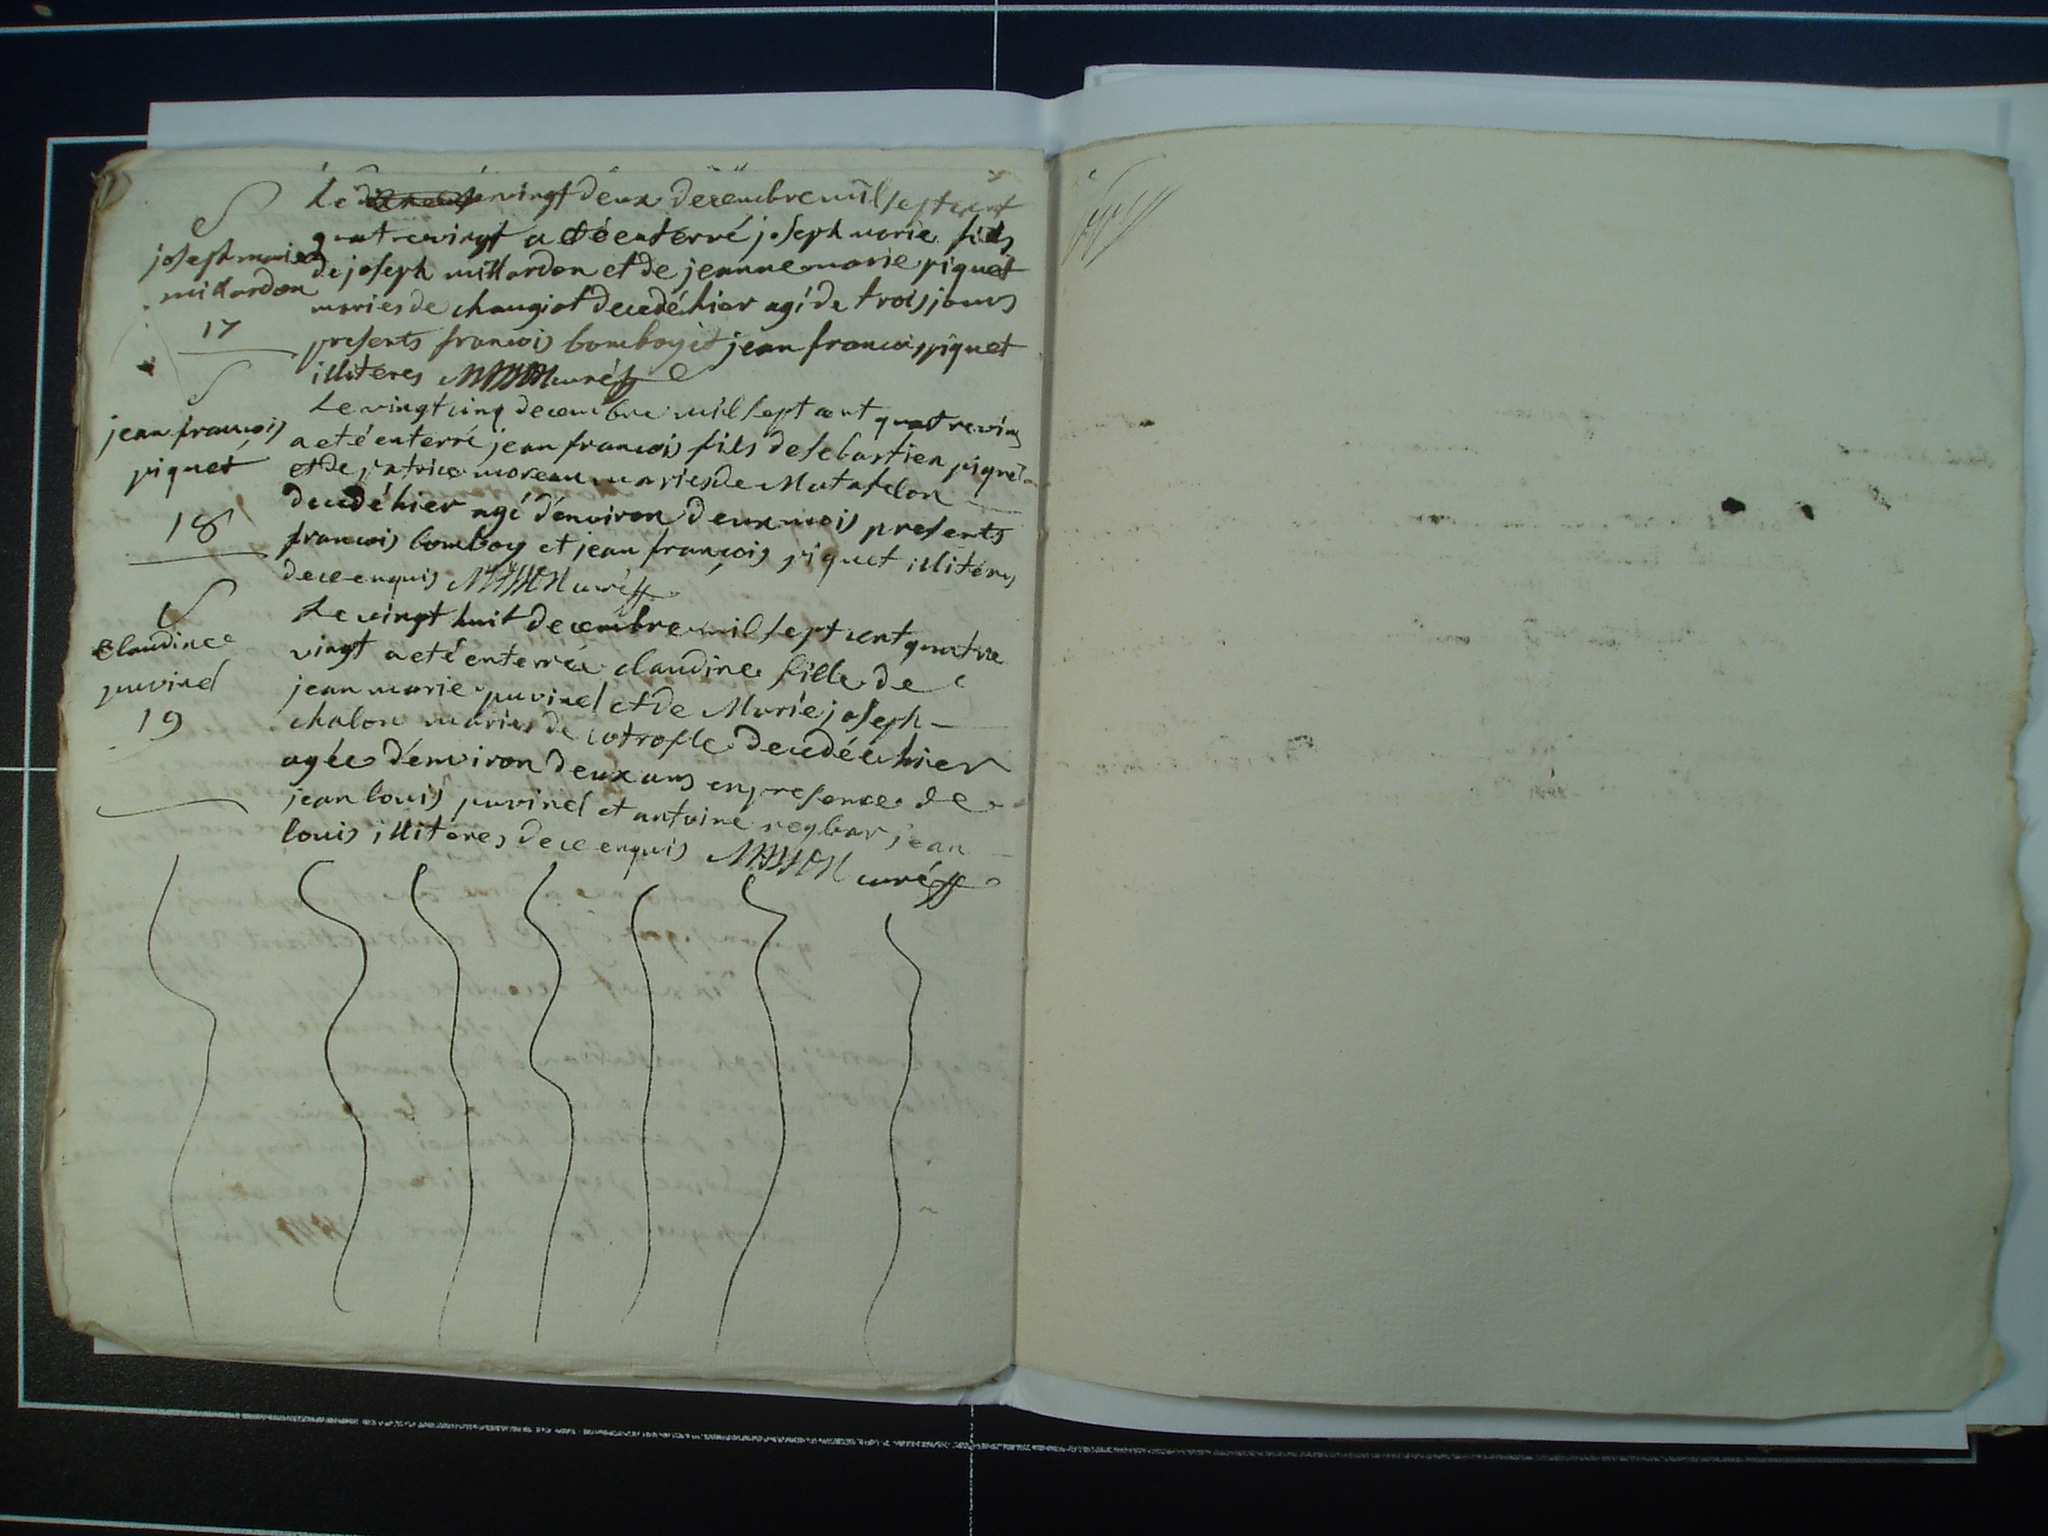 S
joseph marie
millardon
17
Le vingt deux decembre mil sept cent
quatrevingt a eté enterré joseph marie fils
de joseph millardon et de jeanne marie piquet
mariés de changiat decedé hier agé de trois jours
presents francois bomboy et jean francois piquet
illitéres curé
S
jean francois
piquet
18
Le vingt cinq decembre mil sept cent quatrevingt
a eté enterré jean francois fils de sebastien piquet
et de patrice moreau mariés de Matafelon
decedé hier agé d'environ deux mois presents
francois bomboy et jean françois piquet illitéres
de ce enquis curé
S
Claudine
puvinel
19
Le vingt huit decembre mil sept cent quatre
vingt a eté enterrée claudine fille de
jean marie puvinel et de Marie joseph
chalon mariés de cotrofle decedée hier
agée d'environ deux ans en presence de
jean louis puvinel et antoine jean
louis illitéres de ce enquis curé